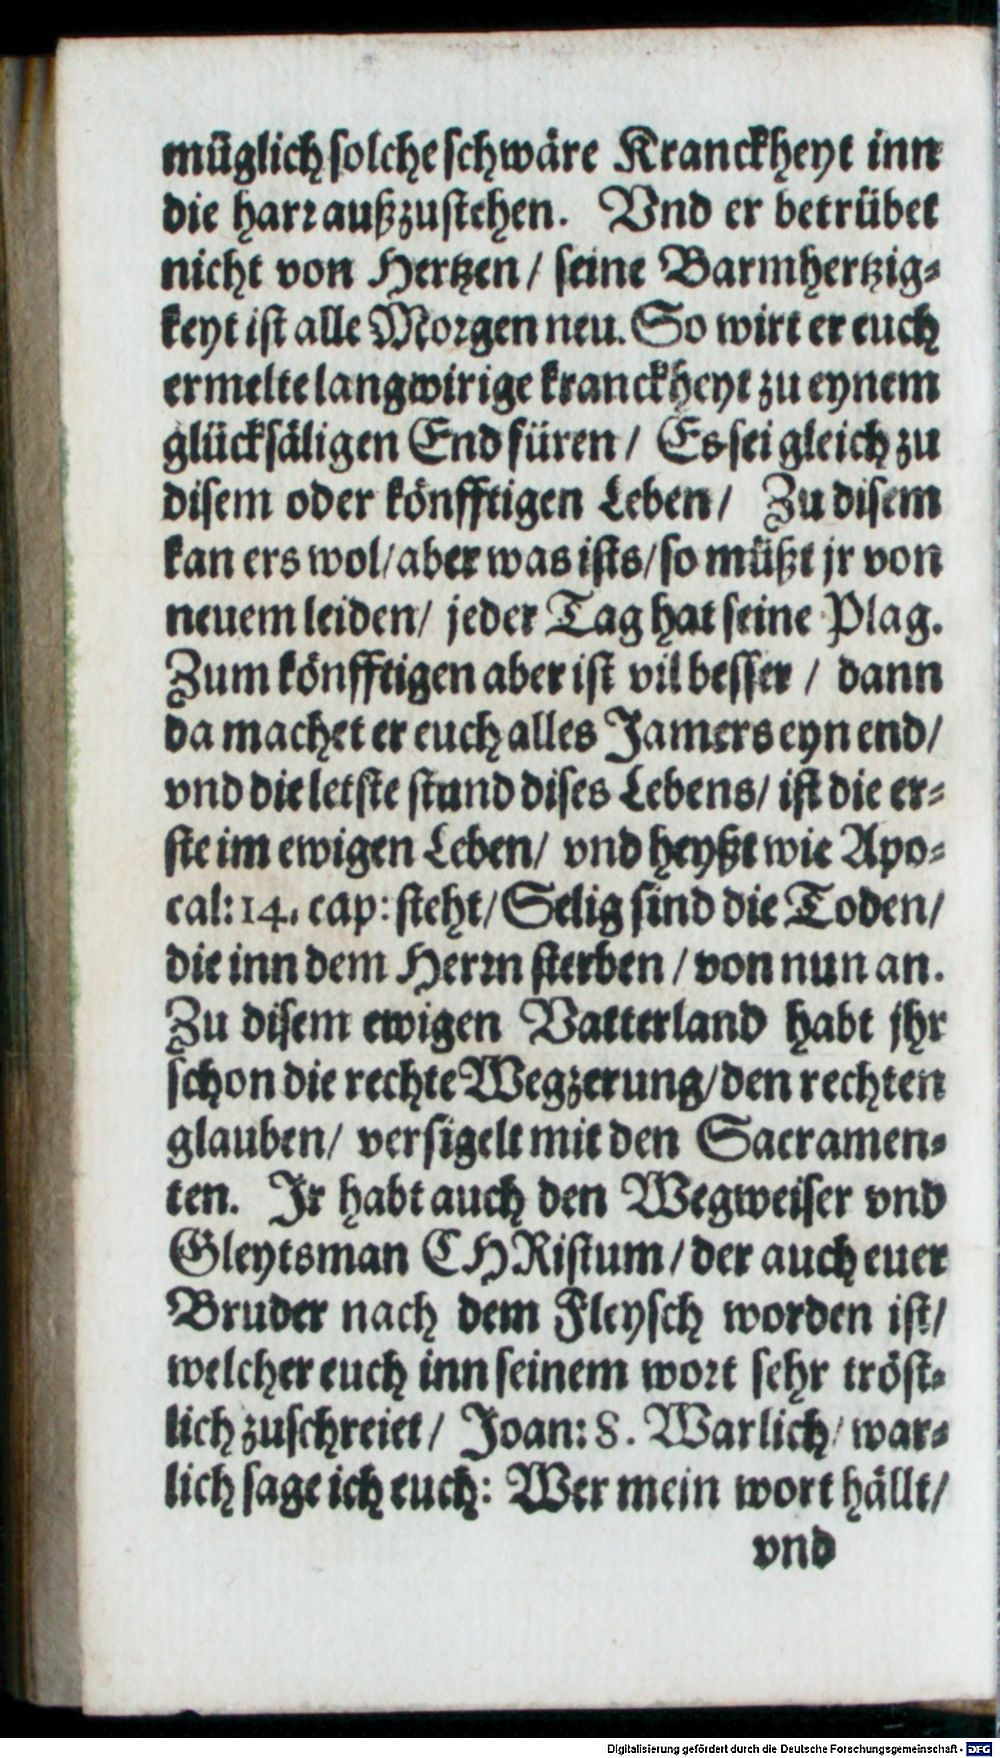 müglich solche schwäre Kranckheyt inn
die harr außzustehen. Vnd er betrübet
nicht von Hertzen / seine Barmhertzig⸗
keyt ist alle Morgen neu. So wirt er euch
ermelte langwirige kranckheyt zu eynem
glücksäligen End füren / Es sei gleich zu
disem oder könfftigen Leben / Zu disem
kan ers wol / aber was ists / so müßt jr von
neuem leiden / jeder Tag hat seine Plag.
Zum könfftigen aber ist vil besser / dann
da machet er euch alles Jamers eyn end /
vnd die letste stund dises Lebens / ist die er⸗
ste im ewigen Leben / vnd heyßt wie Apo⸗
cal: 14. cap: steht / Selig sind die Toden /
die inn dem Herrn sterben / von nun an.
Zu disem ewigen Vatterland habt jhr
schon die rechte Wegzerung / den rechten
glauben / versigelt mit den Sacramen⸗
ten. Jr habt auch den Wegweiser vnd
Gleytsman CHRistum / der auch euer
Bruder nach dem Fleysch worden ist /
welcher euch inn seinem wort sehr tröst⸗
lich zuschreiet / Joan: 8. Warlich / war⸗
lich sage ich euch: Wer mein wort hällt /
vnd
Digitalisierung gefördert durch die Deutsche Forschungsgemeinschaft - DFG